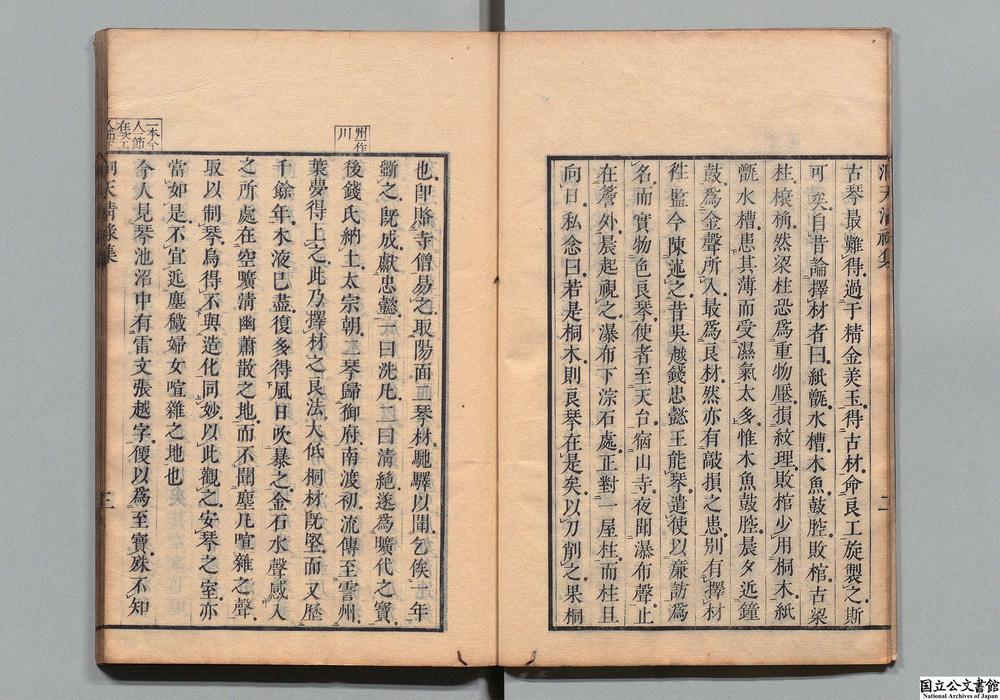 洞天清祿集 二
古琴最難得過于精金美玉得古材命良工旋製之斯
可矣自昔論擇材者曰紙甑水槽木魚鼓腔敗棺古梁
柱榱桷然梁柱恐爲重物壓損紋理敗棺少用桐木紙
甑水槽患其薄而受濕氣太多惟木魚鼓腔晨夕近鐘
鼓爲金聲所入最爲良材然亦有敲損之患別有擇材
徃監今陳述之昔吳越錢忠懿王能琴遣使以廉訪爲
名而實物色良琴使者至天台宿山寺夜聞瀑布聲止
在簷外晨起視之瀑布下淙石處正對一屋柱而柱且
向日私念曰若是桐木則良琴在是矣以刀削之果桐
也卽賂寺僧易之取陽面二琴材馳驛以聞乞俟一年
斵之旣成獻忠懿一曰洗凡二曰清絶遂爲曠代之寶
後錢氏納土太宗朝二琴歸御府南渡初流傳至霅州
葉夢得上之此乃擇材之良法大低桐材旣堅而又歷
千餘年木液已盡復多得風日吹暴之金石水聲感入
之所處在空曠清幽蕭散之地而不聞塵凡喧雜之聲
取以制琴烏得不與造化同妙以此觀之安琴之室亦
當如是不宜近塵穢婦女喧雜之地也
今人見琴池沼中有雷文張越字便以爲至寶殊不知
洞天清祿集 三
州作
川
一本今
人節
在次
国立公文書館
National Archives of Japan